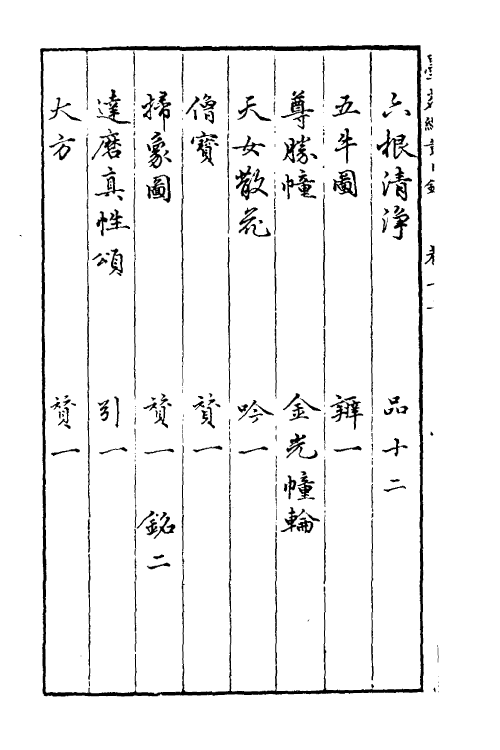 六根清淨 品十二
五牛圖 辯一
尊勝幢 金光幢輪
天女散花 吟一
僧寶 贊一
掃象圖 贊一 銘二
達磨真性頌 引一
大方 贊一